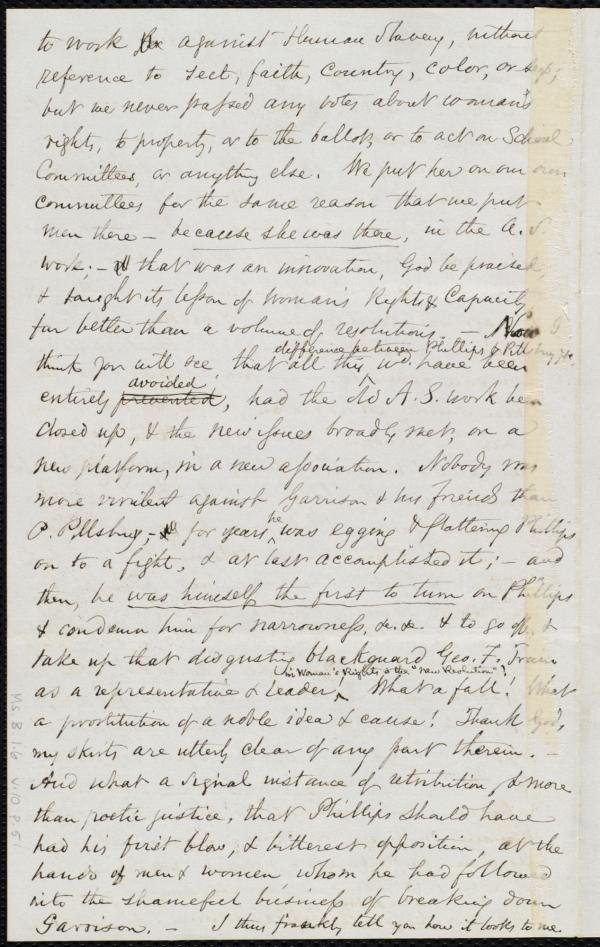 to work against Human Slavery, without
reference to sect, faith, country, color, or sex;
but we never passed any votes about woman's
rights, to property, or to the ballot, or to act on School
Committees, or anything else. We put her on our own
committees for the same reason that we put
men there – because she was there, in the A. S.
work; – that was an innovation, God be praised,
& taught its lesson of Woman's Rights & Capacity
far better than a volume of resolutions. – Now I
difference between Phillips & Pillsbury, &c.
think you will see that all this wd. have been
avoided
entirely prevented, had the old A. S. work been
closed up, & the new issues broadly met, on a
new platform, in a new association. Nobody was
more virulent against Garrison & his friends than
P. Pillsbury, – for years he was egging & flattering Phillips
on to a fight, & at last accomplished it; – and
then, he was himself the first to turn on Phillips
& condemn him for narrowness, &c. &c. & to go off, &
take up that disgusting blackguard Geo. F. Train
in Woman's Rights & the "new Revolution"!
as a representative & Leader, What a fall! What
a prostitution of a noble idea & cause! Thank God,
my skirts are utterly clear of any part therein. –
And what a signal instance of retribution, & more
than poetic justice, that Phillips should have
had his first blow, & bitterest opposition, at the
hands of men & women whom he had followed
into the shameful business of breaking down
Garrison. – I thus frankly tell you how it looks to me.
Ms. B. 1.6 v.10 p.51